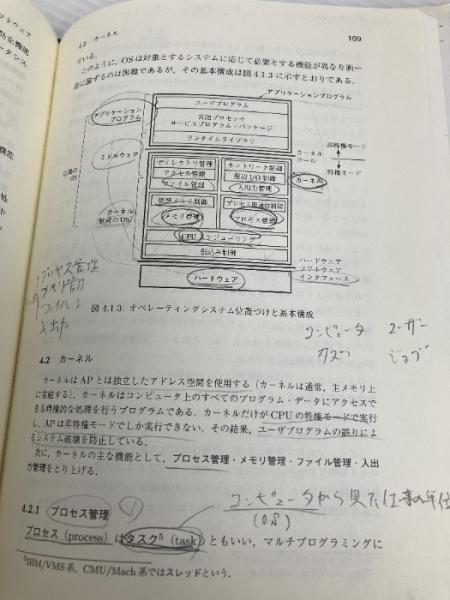 4.2 カーネル
109
ている.
このように, OSは対象とするシステムに応じて必要とする機能が異なり画一
的に論ずるのは困難であるが, その基本構成は図4.1.3に示すとおりである.
アプリケーションプログラム
アプリケーション
プログラム
ユーザプログラム
言語プロセッサ
サービスプログラム・パッケージ
ランタイムライブラリ
非特権モード
カーネル
コール
特権モード
ミドルウェア
ディレクトリ管理
アクセス管理
ファイル管理
ネットワーク制御
周辺I/O制御
入出力管理
カーネル
広義の
OS
仮想メモリ制御
メモリ管理
プロセス間通信制御
プロセス管理
カーネル
狭義のOS
CPUスケジューリング
割込み制御
ハードウェア
ソフトウェア
インタフェース
ハードウェア
プロセス管理
入出力
図 4.1.3: オペレーティングシステム位置づけと基本構成
コンピュータ ユーザー
タスク ジョブ
4.2 カーネル
カーネルはAPとは独立したアドレス空間を使用する (カーネルは通常, 主メモリ上
に常駐する). カーネルはコンピュータ上のすべてのプログラム・データにアクセスで
きる特権的な処理を行うプログラムである. カーネルだけがCPUの特権モードで実行
し, APは非特権モードでしか実行できない. その結果, ユーザプログラムの誤りによ
るシステム破壊を防止している.
次に, カーネルの主な機能として, プロセス管理・メモリ管理・ファイル管理・入出
力管理をとり上げる.
コンピュータから見た仕事の単位
(OS)
4.2.1 プロセス管理 ①
プロセス (process) はタスク5 (task) ともいい, マルチプログラミングに
5IBM/VMS系, CMU/Mach系ではスレッドという.